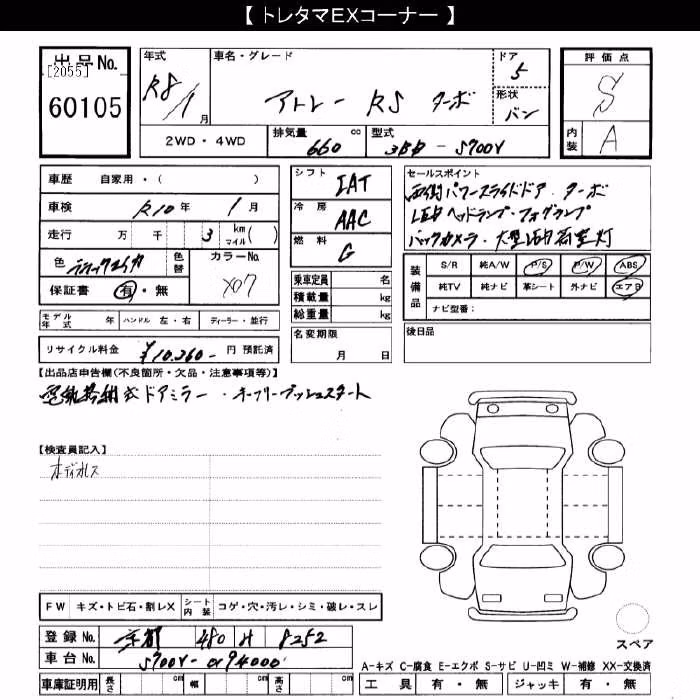 【 トレタマEXコーナー 】
出品No.
[2055]
60105
年式
R8/1月
車名・グレード
アトレー RS ターボ
ドア
5
形状
バン
評価点
S
内装
A
2WD・4WD
排気量 660 cc
型式 3BD-S700V
車歴 自家用・( )
車検 R10年 1月
走行 万 千 3 km マイル( )
色
色替
カラーNo.
X07
保証書 有・無
モデル年式 年
ハンドル 左・右
ディーラー・並行
リサイクル料金 ¥10,260- 円 預託済
シフト IAT
冷房 AAC
燃料 G
乗車定員 名
積載量 kg
総重量 kg
名変期限
月 日
セールスポイント
両側パワースライドドア・ターボ
LEDヘッドランプ・フォグランプ
バックカメラ・大型LED荷室灯
装備品
S/R 純A/W P/S P/W ABS
純TV 純ナビ 革シート 外ナビ エアB
ナビ型番:
後日品
【出品店申告欄(不良箇所・欠品・注意事項等)】
電動格納式ドアミラー・キーフリープッシュスタート
【検査員記入】
FW キズ・トビ石・割レX
シート内装 コゲ・穴・汚レ・シミ・破レ・スレ
登録No. 京都 480 8252
車台No. S700V-0194000
車庫証明用 長さ cm 幅 cm 高さ cm
スペア
A-キズ C-腐食 E-エクボ S-サビ U-凹ミ W-補修 XX-交換済
工具 有・無 ジャッキ 有・無